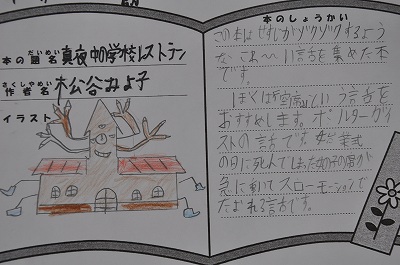 本の題名 真夜中の学校レストラン
だいめい
作者名 松谷みよ子
さくしゃめい
イラスト
本のしょうかい
この本はせすじがゾクゾクするよう
な、こわ〜い話を集めた本
です。
ぼくは「という話を
おすすめします。ポルターガイ
ストの話です。葬式
の日に死んでしまった女の子の首が
急に動いてスローモーションで
たおれる話です。